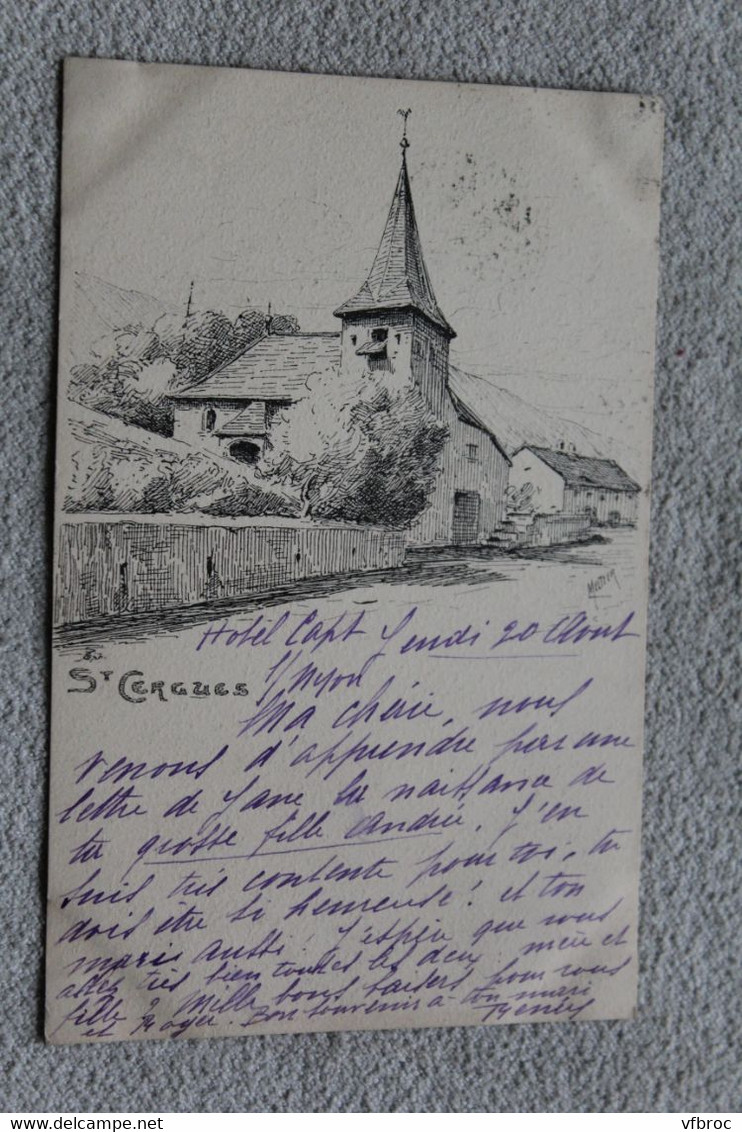 Hôtel Capt Jeudi 20 Aout
St CERGUES
s/ Nyon
Ma chérie, nous
venons d'apprendre par une
lettre de Jane la naissance de
ta grosse fille Andrée. J'en
suis très contente pour toi, tu
dois être si heureuse! et ton
mari aussi! J'espère que vous
allez très bien toutes les deux mère et
fille? Mille bons baisers pour vous
et Bon souvenir à ton mari
Renée
delcampe.net
vfbroc